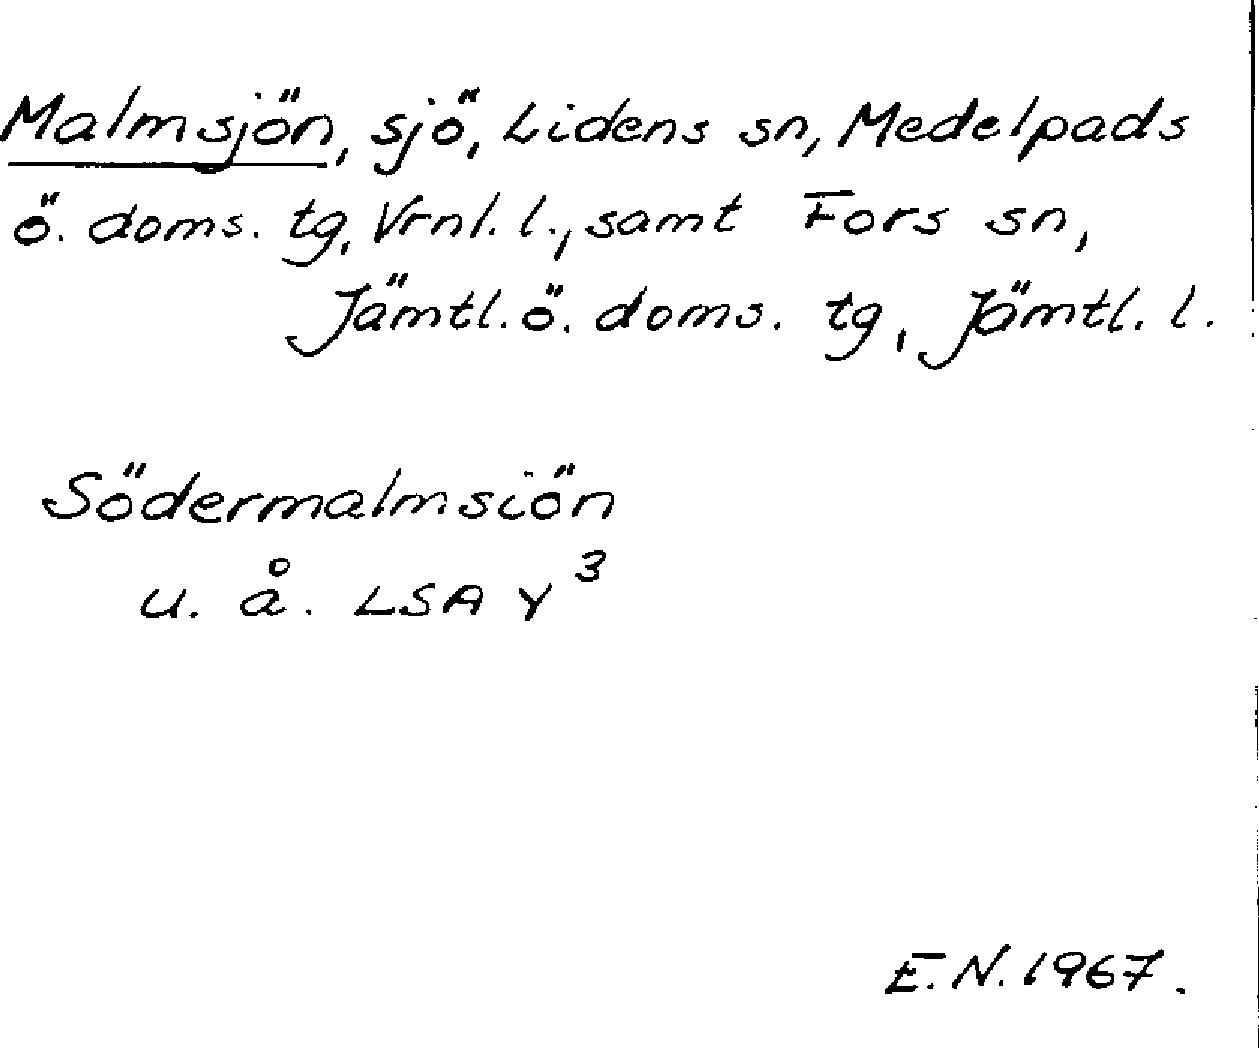 Malmsjön, sjö, Lidens sn, Medelpads
ö. doms. tg, Vrnl. l., samt Fors sn,
Jämtl. ö. doms. tg, Jämtl. l.
Södermalmsiön
u. å. LSA Y³
E.N. 1967.